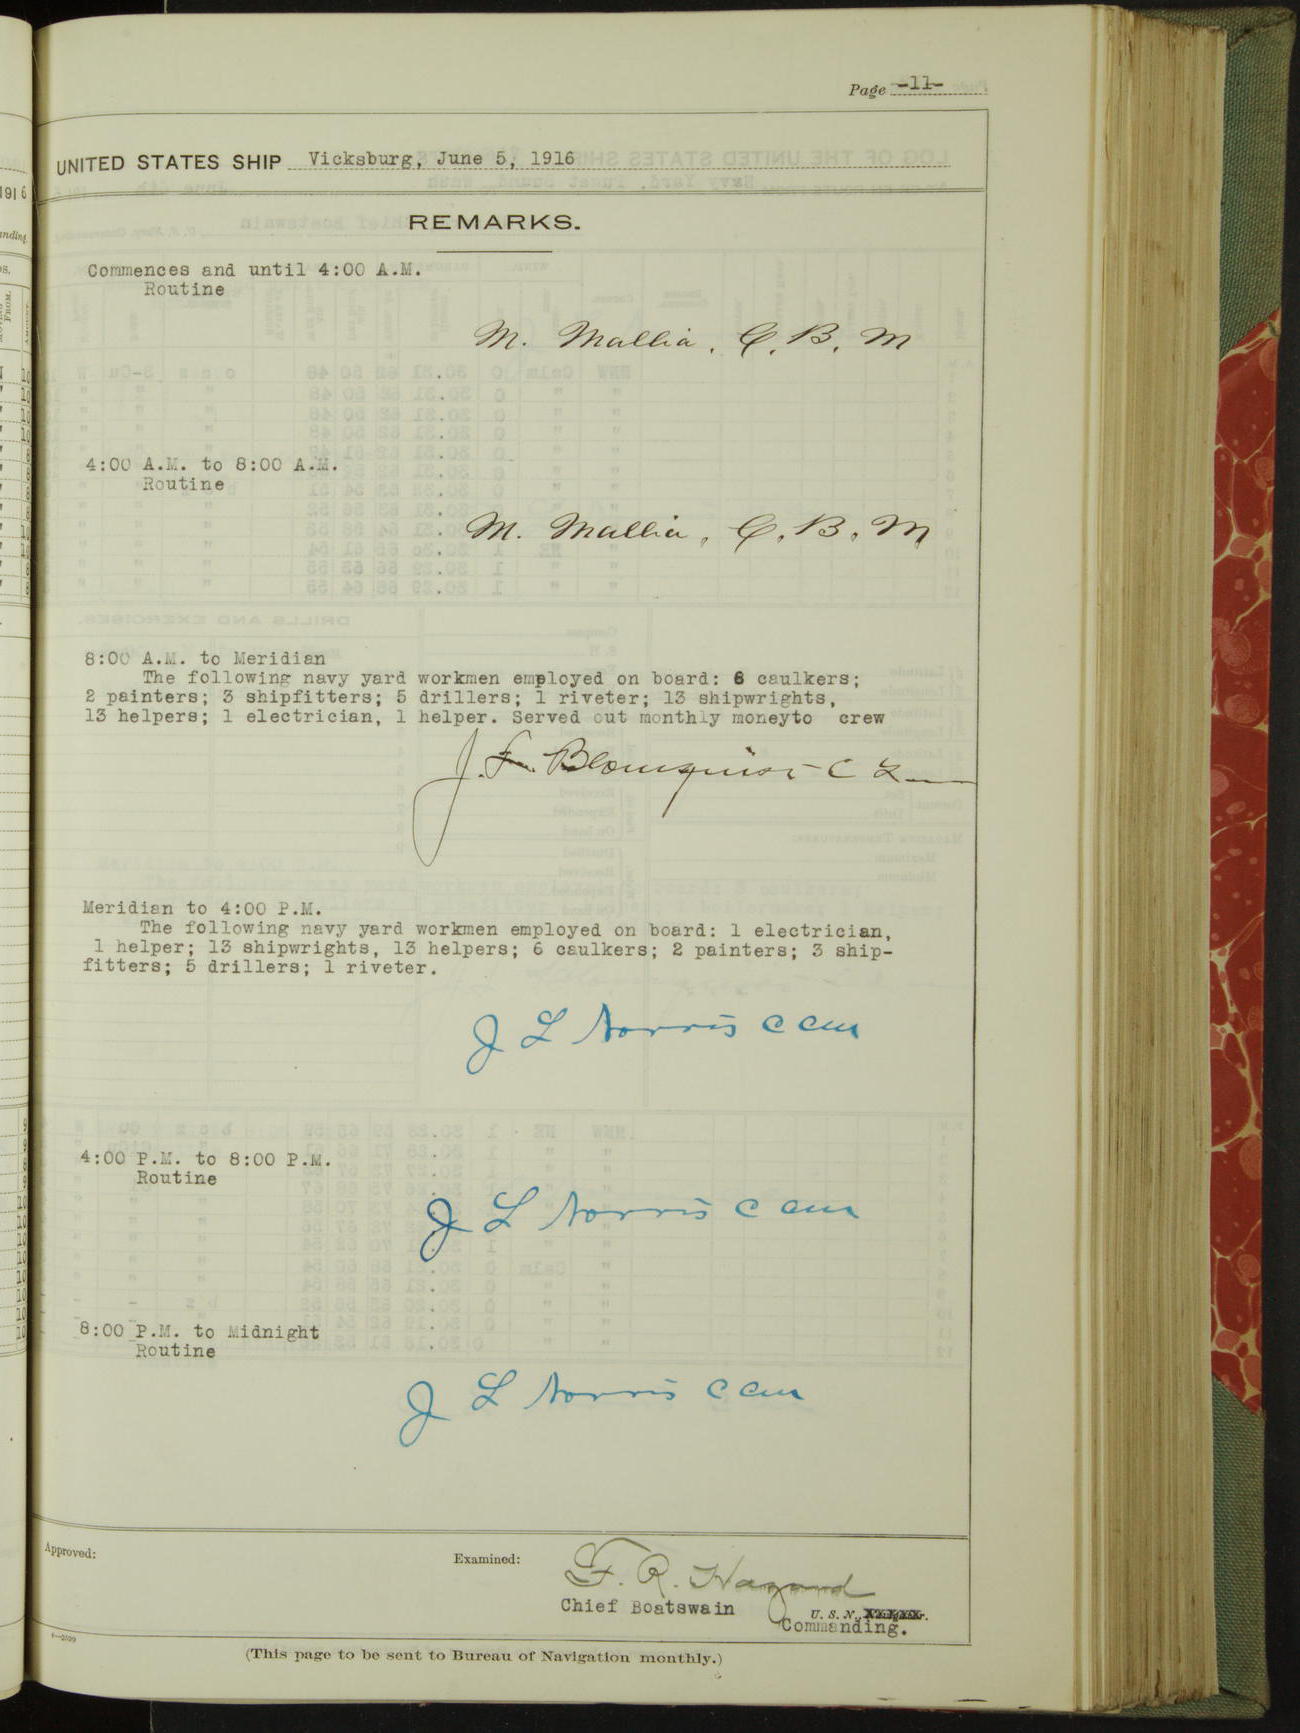 Page -11-
UNITED STATES SHIP Vicksburg, June 5, 1916
REMARKS.
Commences and until 4:00 A.M.
Routine
M. Mallia, C.B.M
4:00 A.M. to 8:00 A.M.
Routine
M. Mallia, C.B.M
8:00 A.M. to Meridian
The following navy yard workmen employed on board: 6 caulkers;
2 painters; 3 shipfitters; 5 drillers; 1 riveter; 13 shipwrights,
13 helpers; 1 electrician, 1 helper. Served out monthly moneyto crew
J. F. Blomquist C
Meridian to 4:00 P.M.
The following navy yard workmen employed on board: 1 electrician,
1 helper; 13 shipwrights, 13 helpers; 6 caulkers; 2 painters; 3 ship-
fitters; 5 drillers; 1 riveter.
J L Norris C CM
4:00 P.M. to 8:00 P.M.
Routine
J L Norris C CM
8:00 P.M. to Midnight
Routine
J L Norris C CM
Approved:
Examined:
F. R. Hazard
Chief Boatswain
U. S. N.,
Commanding.
(This page to be sent to Bureau of Navigation monthly.)